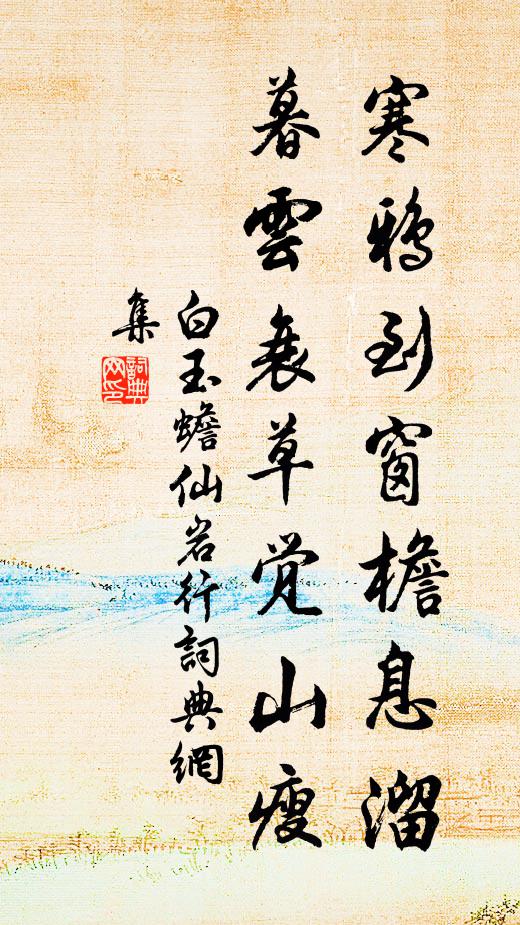 寒鴉到窗檐息溜
暮雲衰草覺山瘦
白玉蟾仙岩行詞典網
集
詞典网印